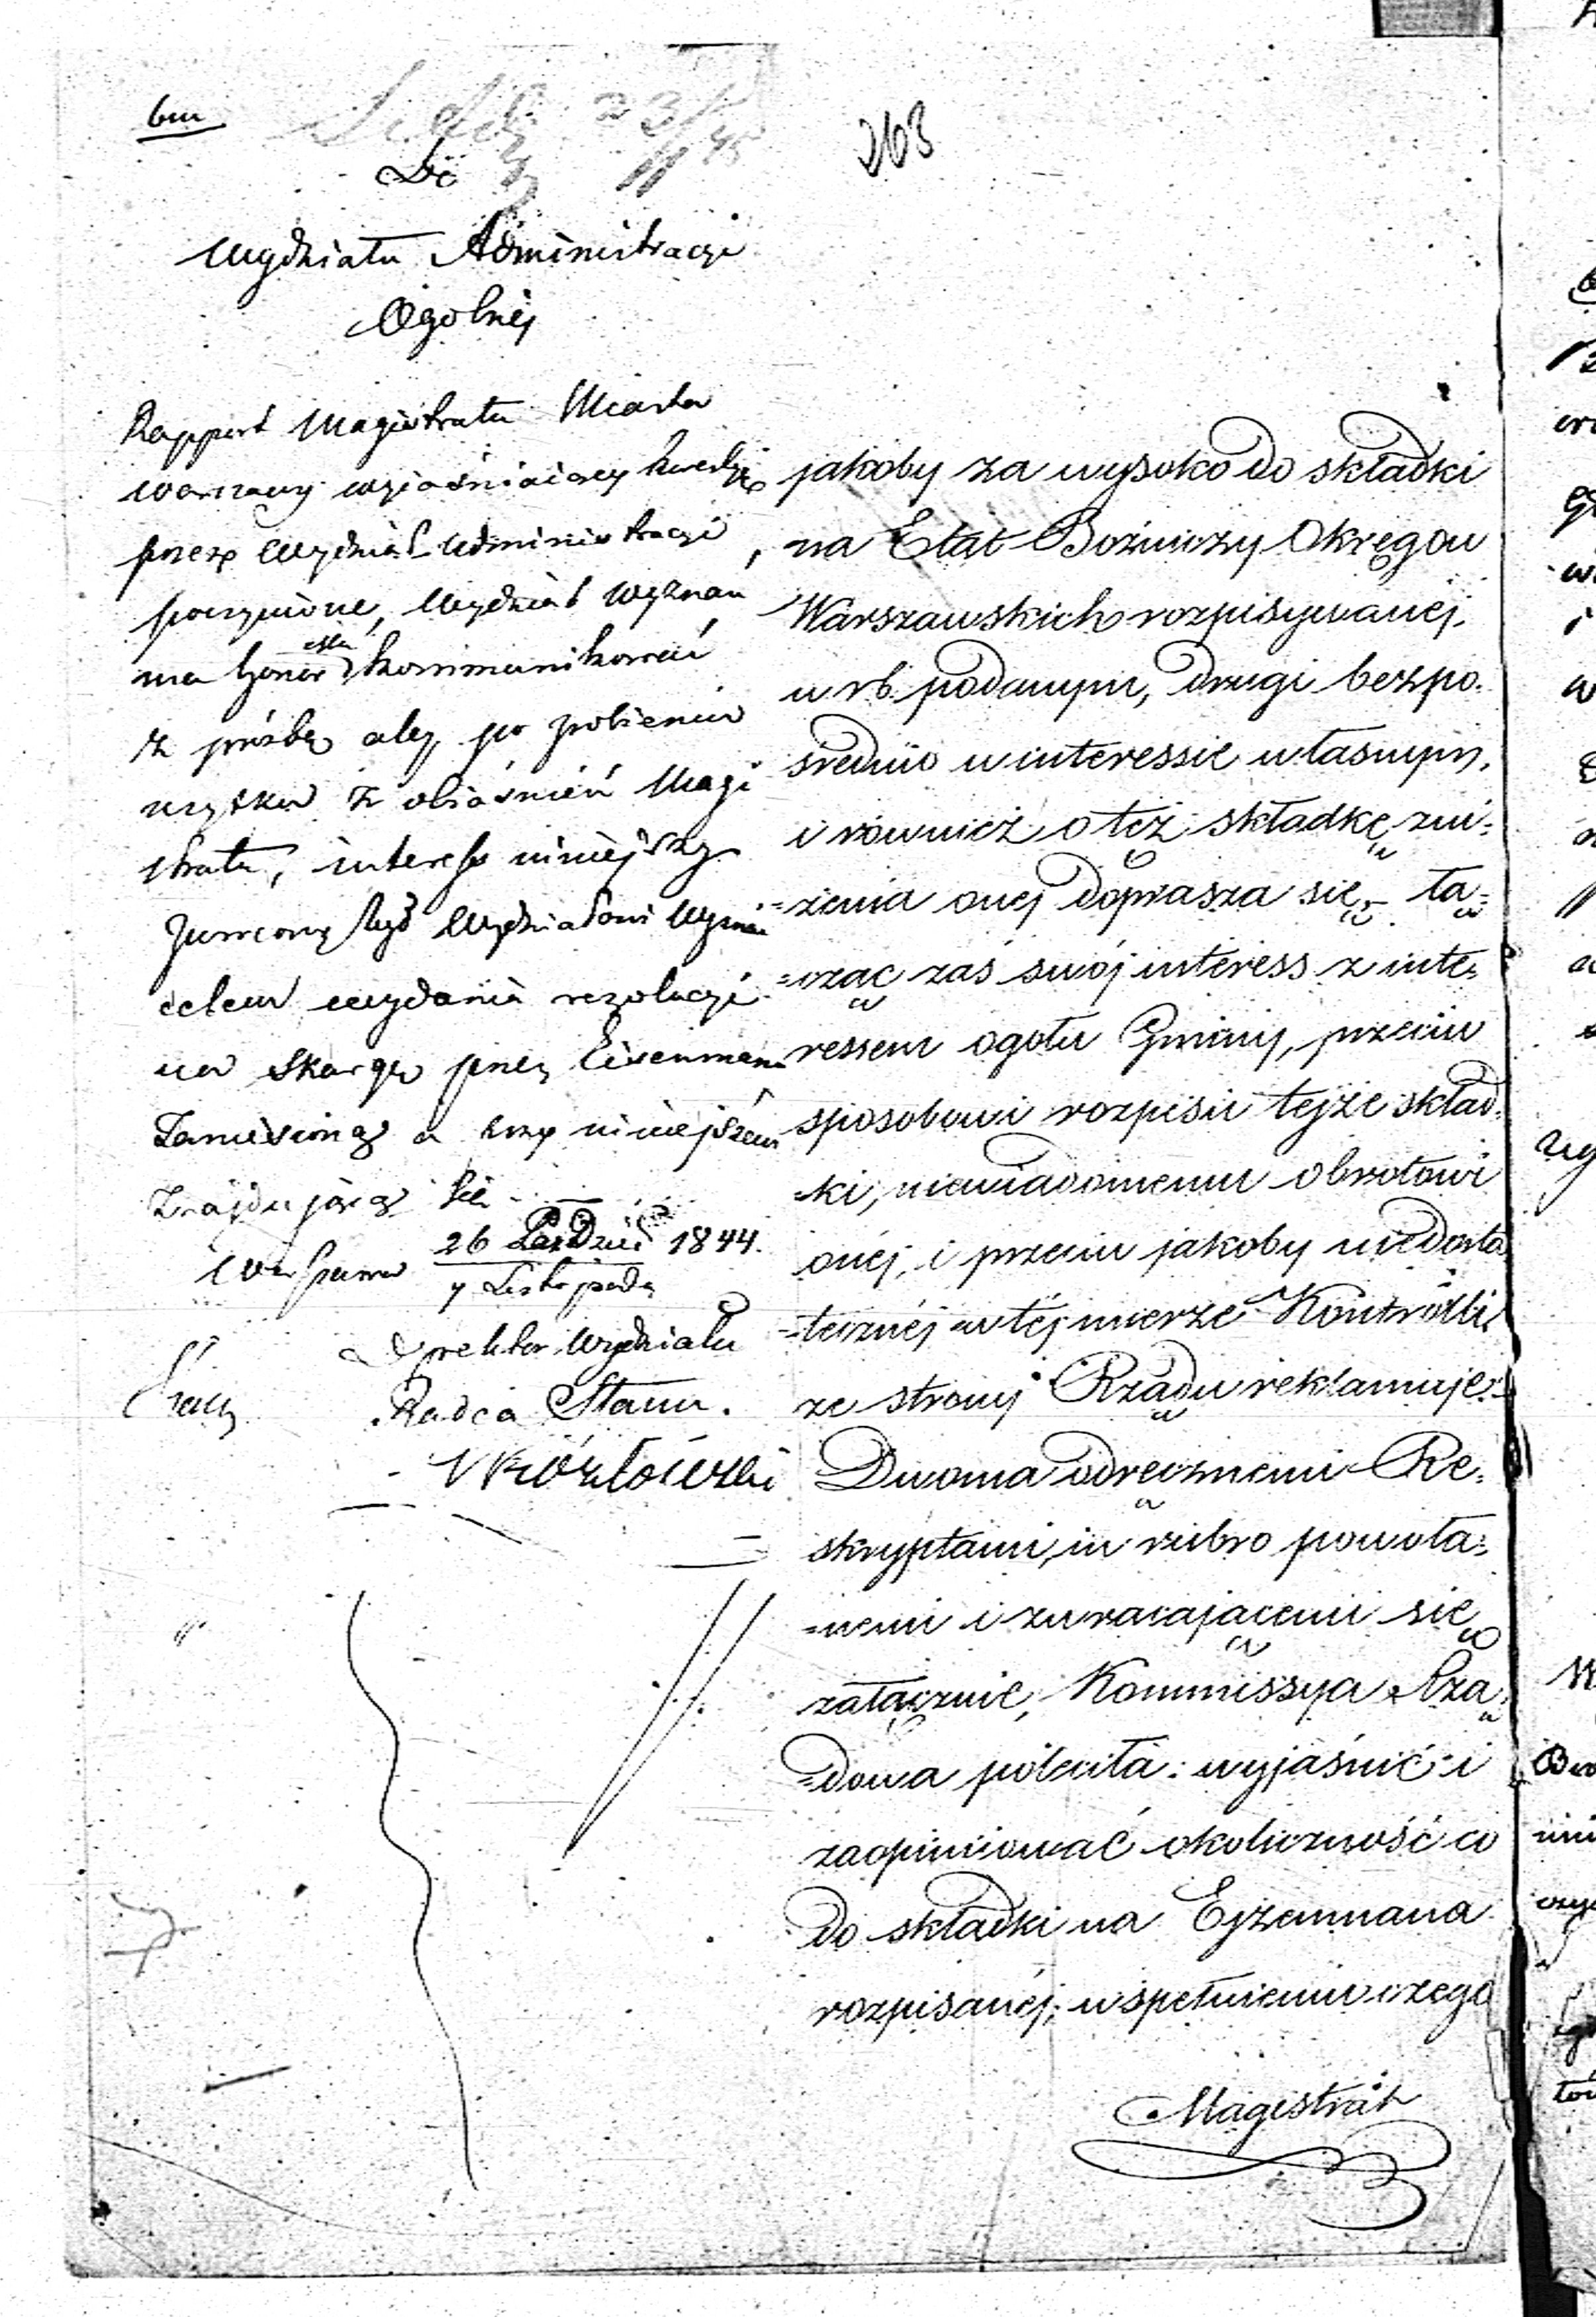 bm
263
Do
Wydziału Administracyi
Ogolnéj
Rapport Magistratu Miasta
Warszawy wyjaśniaiący kwestyę
przez Wydział Administracyi
poczynione, Wydział Wyznań
ma honor kommunikować
z prośbą aby po zrobieniu
użytku z obiaśnień Magi
stratu, interess niniejszy
zwrócony był Wydziałowi Wyznań
celem wydania rezolucyi
na skargę przez Eisenmana
zaniesioną a przy niniejszem
znajdującą się
Warszawa 26 Paździer 1844.
7 Listopada
Dyrektor Wydziału
Radca Stanu.
jakoby za wysoko do składki
na Etat Bożniczy Okręgów
Warszawskich rozpisywanéj,
w rb. podanym, drugi bezpo-
średnio w interessie własnym,
i również o téż składkę zni-
=żenia onéj doprasza się, łą-
=cząc zaś swój interess z inte-
ressem ogółu Gminy, przeciw
sposobowi rozpisu tejże skład-
-ki, niewiadomemu obrotowi
onéj, i przeciw jakoby niedosta
=tecznéj w téj mierze Kontrolli,
ze strony Rządu reklamuje.
Dwoma odręcznemi Re-
skryptami, in rubro powoła-
=nemi i zwracającemi się
załącznie, Kommissya Rzą-
=dowa poleciła: wyjaśnić i
zaopiniować okoliczność co
do składki na Ejzenmana
rozpisanéj; w spełnieniu czego
Magistrat